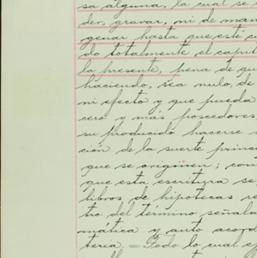 sa alguna, la cual se
der, gravar, ni de man
genar hasta que esté pa
do totalmente el capit
la presente, pena de qu
haciendo, sea nulo, de
ni efecto y que pueda
cero y más poseedores
su producido hacerse
ción de la suerte princ
que se originen; con
que esta escritura se
libros de hipotecas re
tro del término señala
mática y auto acord
teria. = Todo lo cual